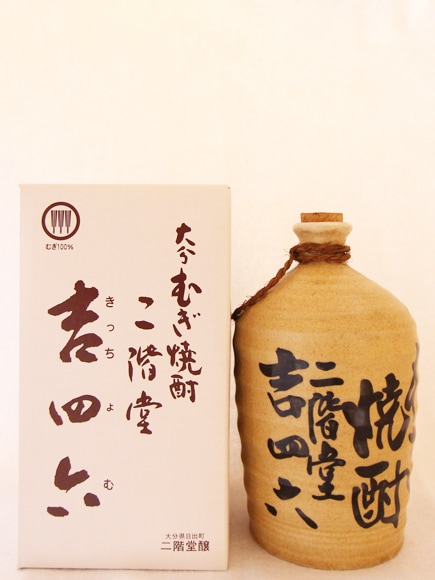 むぎ100%
大分むぎ焼酎
二階堂
吉四六
きっちょむ
大分県日出町
二階堂醸
焼酎
二階堂
吉四六